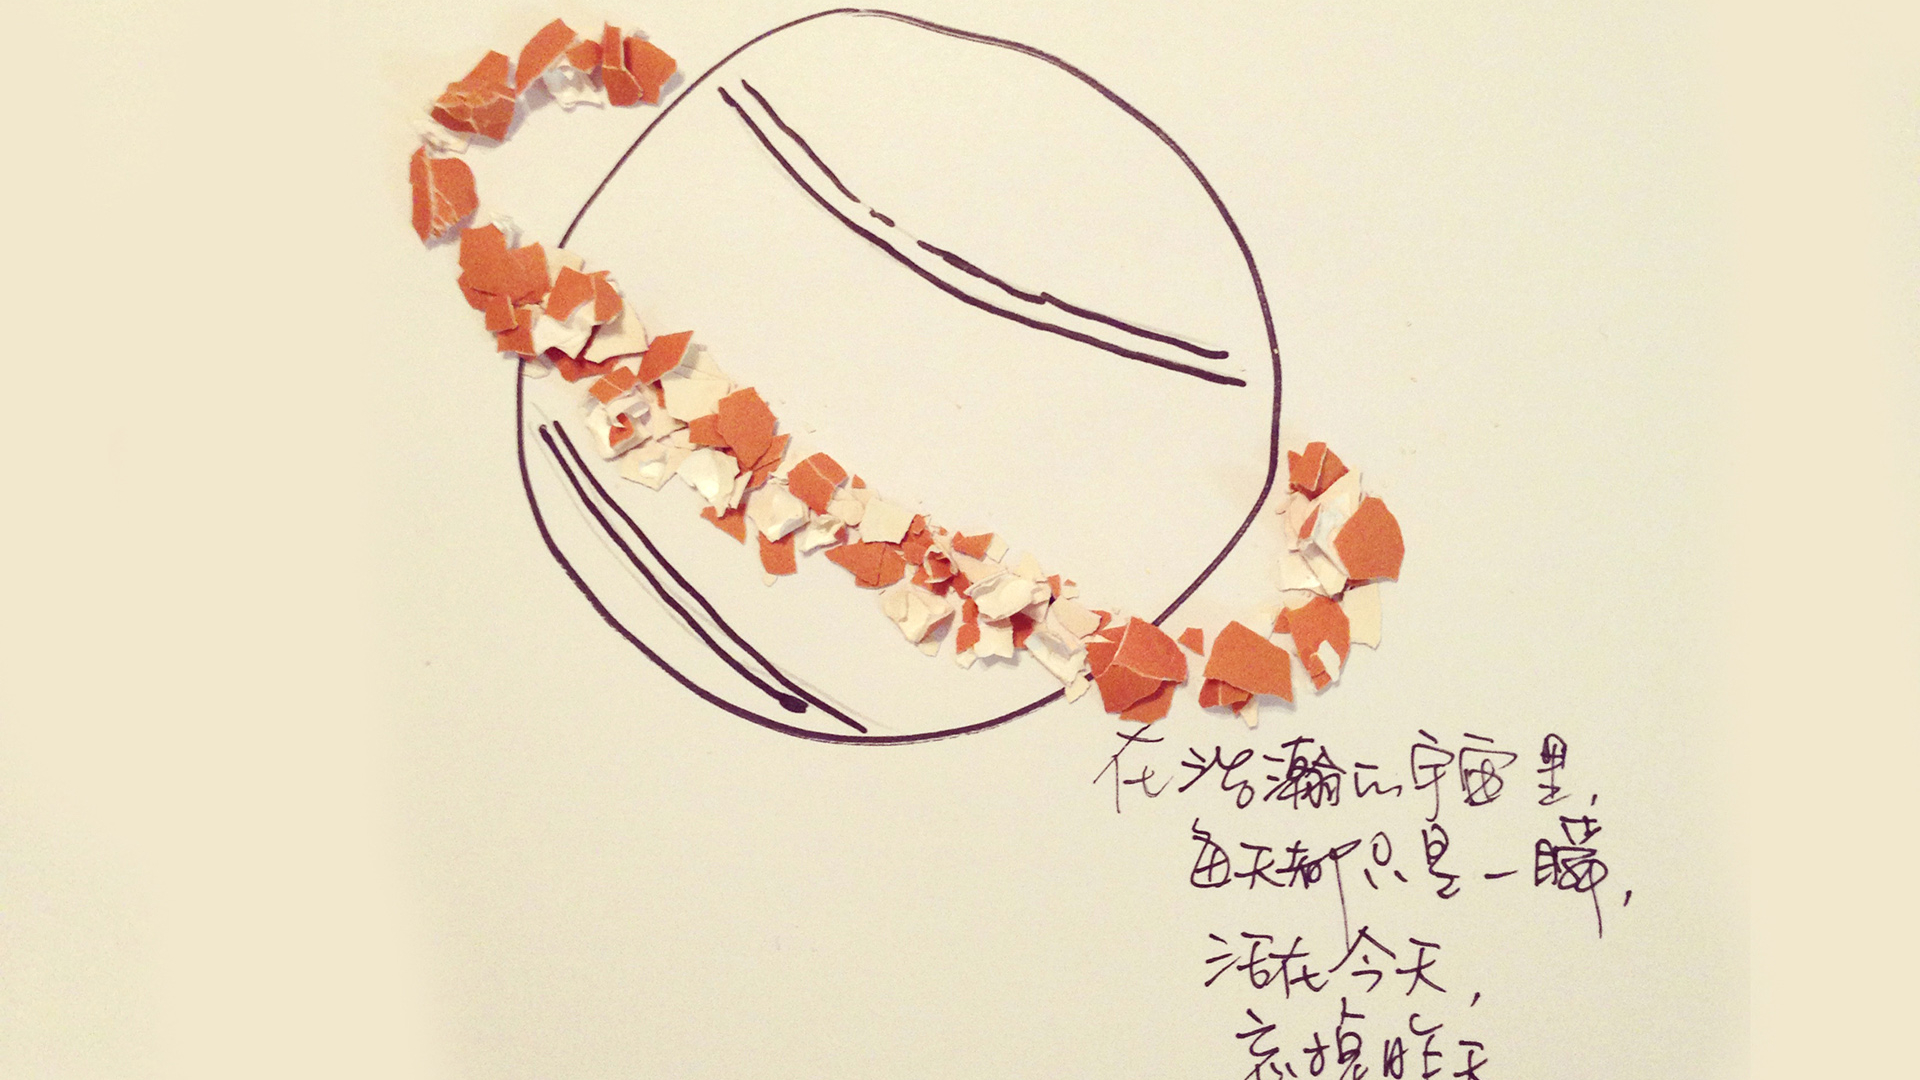 在浩瀚的宇宙里,
每天都只是一瞬,
活在今天,
忘掉昨天